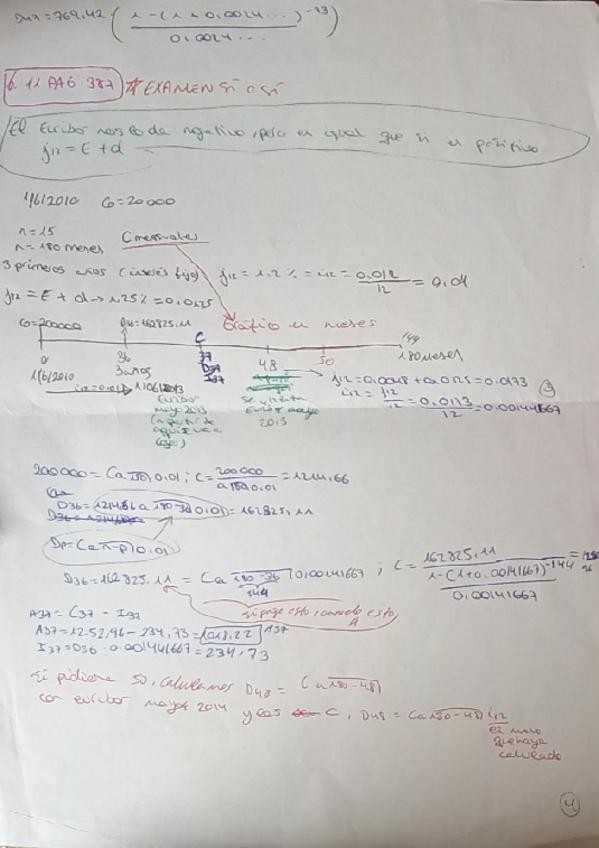 D47 = 769,42 ( 1-(1+0.0024...)^-23 / 0.0024... )
6.12 PAG 387 * EXAMEN SÍ O SÍ
El Euribor nos lo da negativo, pero es igual que si es positivo
j12 = E + d
1/6/2010 C0=20000
n=15
n=180 meses C mensuales
3 primeros años (interés fijo) j12 = 1.2% = i12 = 0.012 / 12 = 0.01
j12 = E + d → 1.25% = 0.0125
C0=200000 D36=162825.11 C Gráfico en meses
0 36 37 48 50 180 meses
1/6/2010 3 años
Euribor mayo 2013
2013
j12=0.0048+0.0125=0.0173
i12 = j12 / 12 = 0.0173 / 12 = 0.00144667
3
200000 = C a 180 0.01 ; C = 200000 / a 180 0.01 = 1214,66
D36 = 1214,66 a 180-36 0.01 = 162825,11
Dp = C a n-p 0.01
D36 = 162825,11 = C a 180-36 0,00141667 ; C = 162825,11 / 1-(1+0.00141667)^-144 / 0.00141667
144
Si pide esto, cuando esto
A37 = C37 - I37
A37 = 1252,96 - 234,73 = 1018,22
I37 = D36 · 0.001441667 = 234,73
Si pidiera 50, calculamos D48 = C a 180-48
con euribor mayo 2014 y C, D48 = C a 180-48 i12
el nuevo
que haya
calculado
4